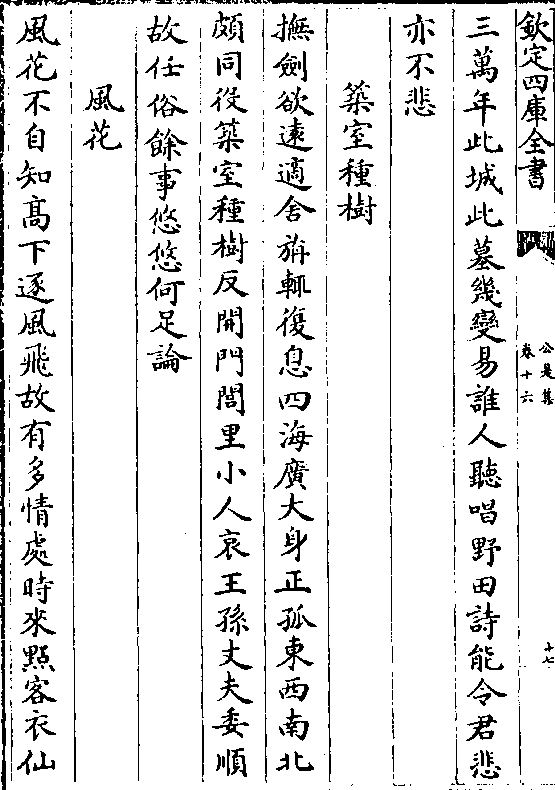 欽定四庫全書
公是集
卷十六
十七
三萬年此城此墓幾變易誰人聽唱野田詩能令君悲
亦不悲
築室種樹
撫劍欲遠適舍旃輒復息四海廣大身正孤東西南北
頗同役築室種樹反開門閭里小人哀王孫丈夫委順
故任俗餘事悠悠何足論
風花
風花不自知髙下逐風飛故有多情處時來㸃客衣仙